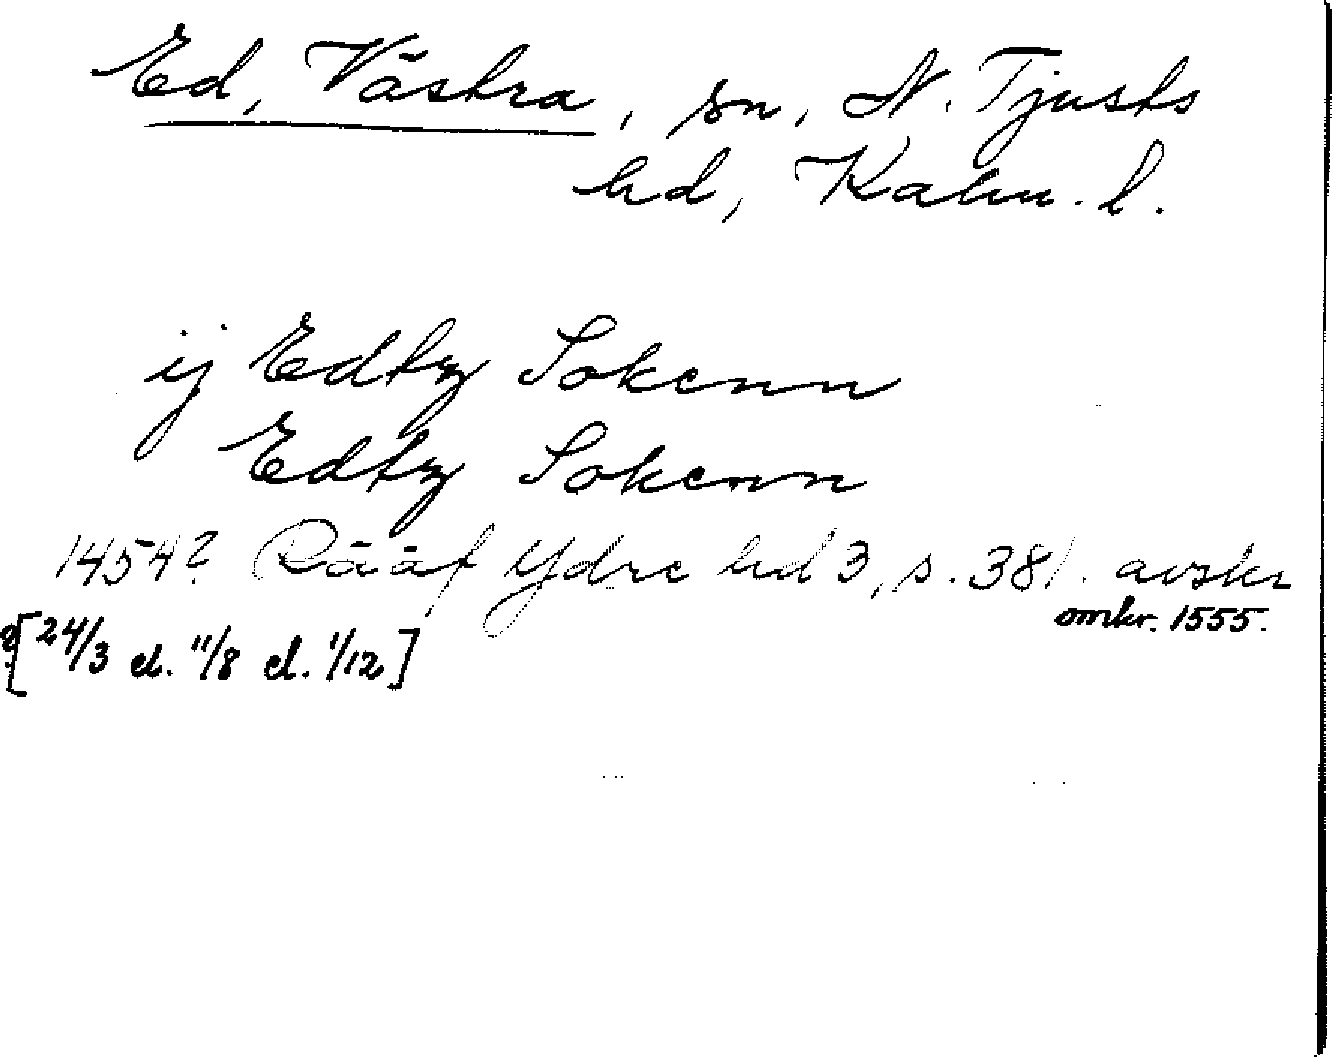 Ed, Västra, sn, N. Tjusts
hd, Kalm. l.
ij Edtz Sokenn
Edtz Sokenn
1454? Rääf Ydre hd 3, s. 381. avskr
omkr. 1555.
?[24/3 el. 11/8 el. 1/12]